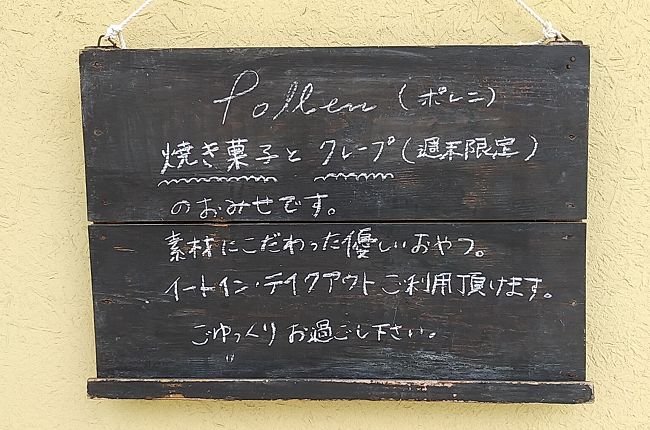 Pollen (ポレニ)
焼き菓子とクレープ(週末限定)
のおみせです。
素材にこだわった優しいおやつ。
イートイン・テイクアウトご利用頂けます。
ごゆっくりお過ごし下さい。